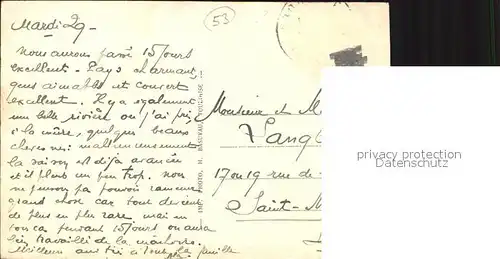 Mardi 29-
53
Nous aurons passé 15 jours
excellents - Pays charmant,
gens aimables et couvert
excellent. Il y a également
une belle rivière où j'ai pris
à la mûre, quelques beaux
chevesnes malheureusement
la saison est déjà avancée
et il pleut un peu trop. Nous
ne pensons pas pouvoir ramener
grand chose car tout devient
de plus en plus rare mais en
tout cas pendant 15 jours on aura
bien travaillé de la mâchoire.
Meilleure amitié à toute la famille
Monsieur et M
Lang
17 ou 19 rue de
Saint-M
IMP. PHOTO. H. BASUYAU, TOULOUSE
privacy protection
Datenschutz